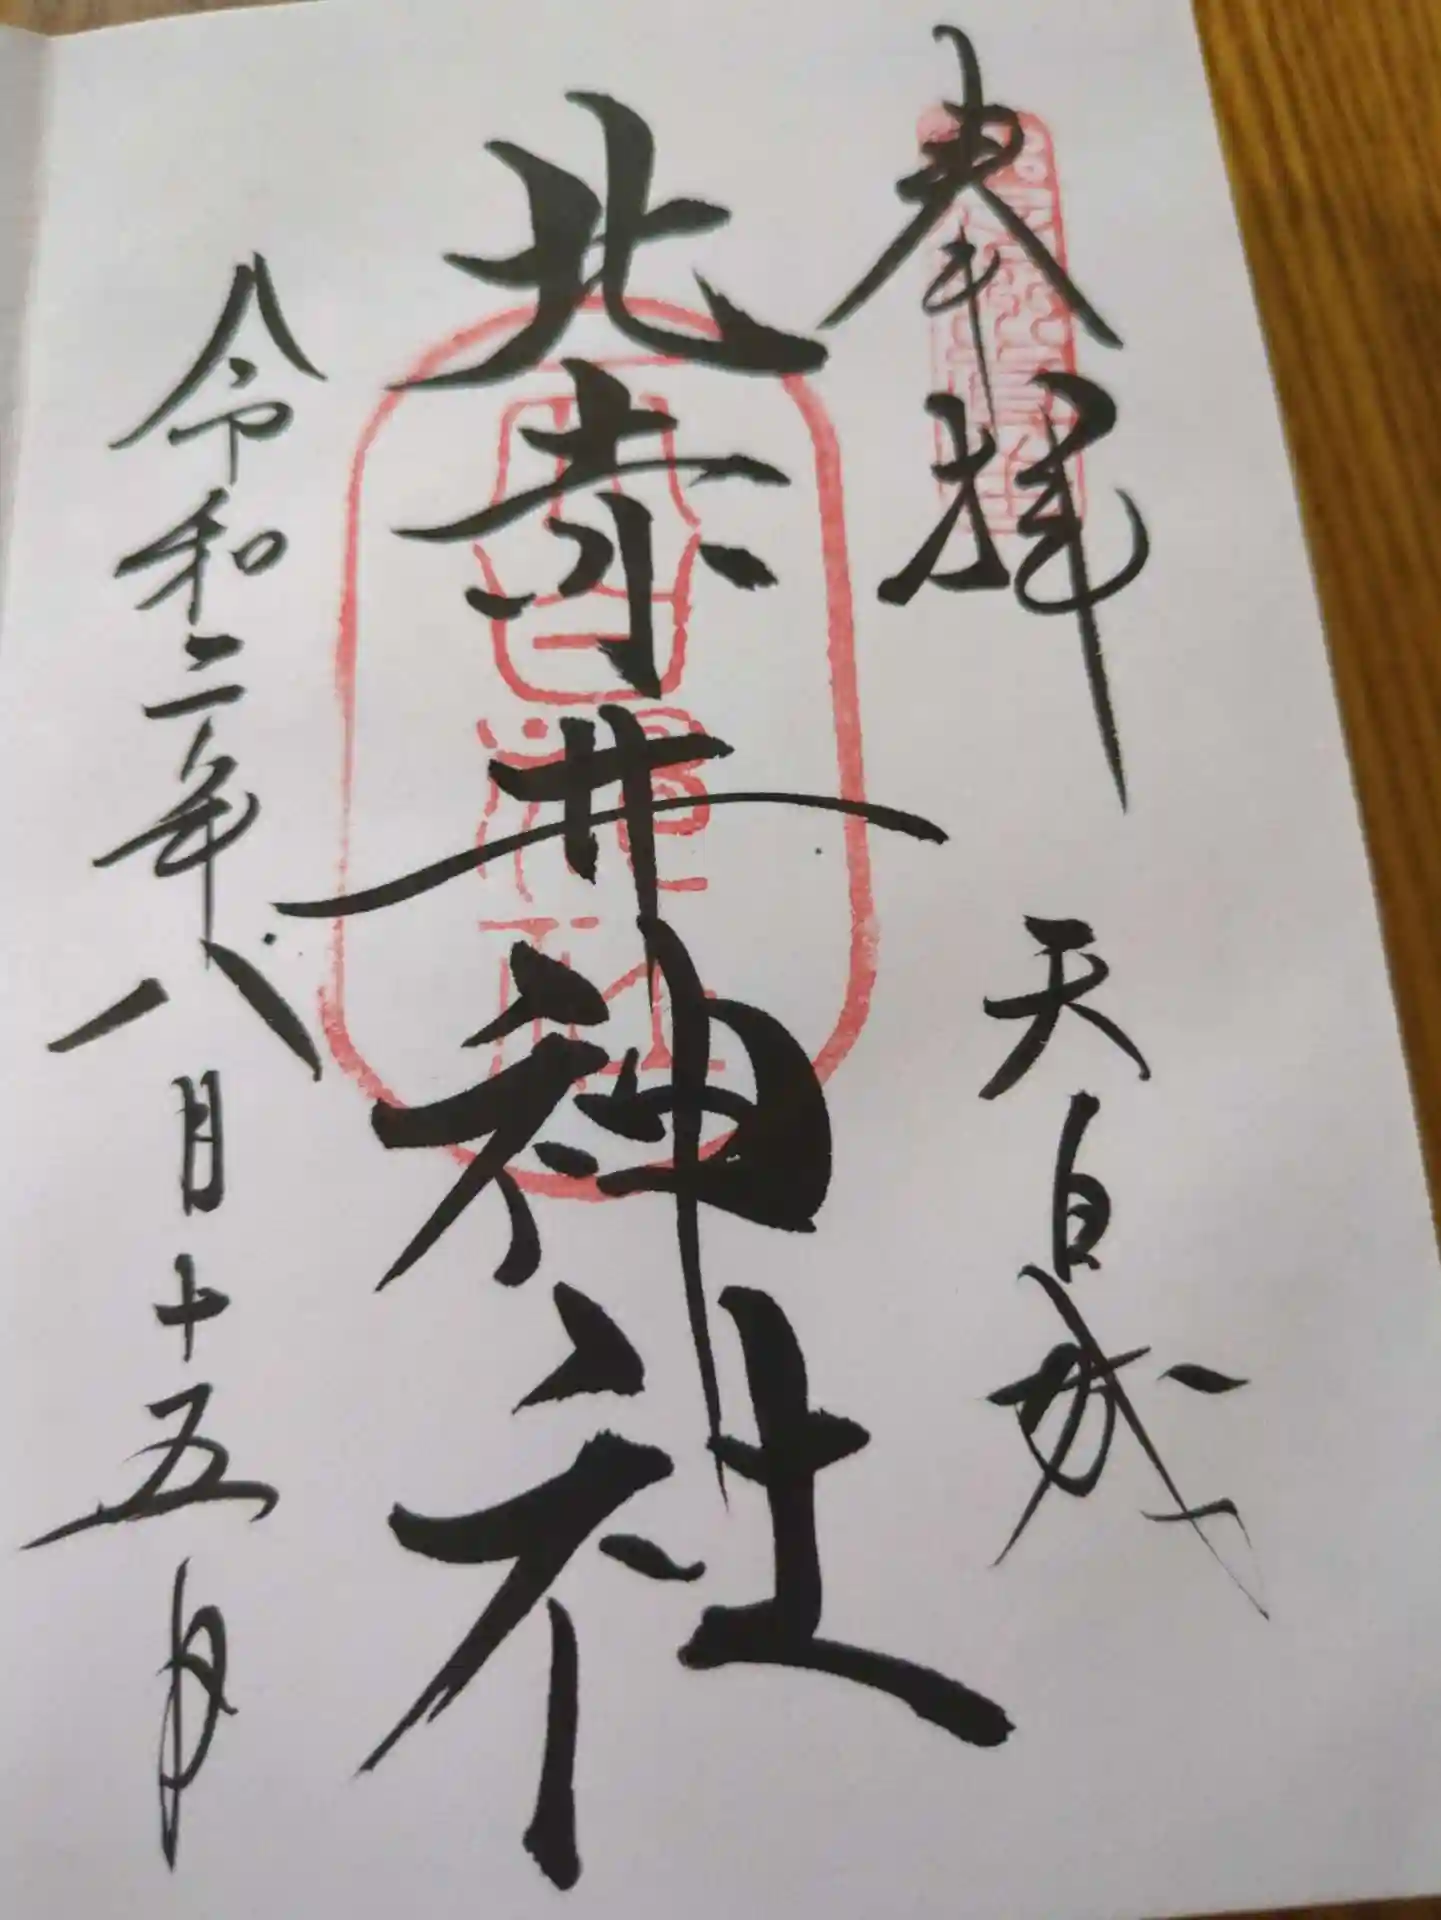 奉拝　天白城
北赤井神社
令和二年八月十五日